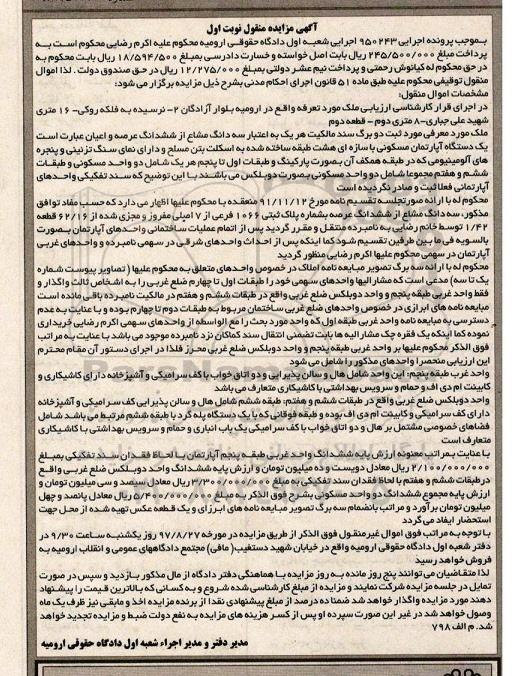 آگهی مزایده منقول نوبت اول
بـموجب پرونده اجرایی ۹۵۰۲۴۳ اجرایی شعبـه اول دادگاه حقوقـی ارومیه محکوم علیه اکرم رضایی محکوم اسـت بـه
پرداخت مبلغ ۲۴۵/۵۰۰/۰۰۰ ریال بابت اصل خواسته و خسارت دادرسی بمبلغ ۱۸/۵۹۴/۵۰۰ ریال بابت محکوم به
در حق محکوم له کیانوش رحمتی و پرداخت نیم عشر دولتی بمبلغ ۱۲/۲۷۵/۰۰۰ ریال در حق صندوق دولت . لذا اموال
منقول توقیفی محکوم علیه طبق ماده ۵۱ قانون اجرای احکام مدنی بشرح ذیل مزایده برگزار می شود:
مشخصات اموال منقول:
در اجرای قرار کارشناسی ارزیابی ملک مورد تعرفه واقع در ارومیه بلوار آزادگان ۲- نرسیده به فلکه روکی- ۱۶ متری
شهید علی جباری-۸ متری دوم - قطعه دوم
ملک مورد معرفی مورد ثبت دو برگ سند مالکیت هر یک به اعتبار سه دانگ مشاع از ششدانگ عرصه و اعیان عبارت است
یک دستگاه آپارتمان مسکونی با سازه ای هشت طبقه ساخته شده به اسکلت بتن مسلح و دارای نمای سنگ تزئینی و پنجره
های آلومینیومی که در طبقه همکف آن بـصورت پارکینگ و طبقات اول تا پنجم هر یک شامل دو واحد مسکونی و طبقـات
ششـم و هفتم مجموعا شـامل دو واحـد مسکونی بـصورت دوبـلکس می باشـند بـا این توضیح که سـند تفکیکی واحـدهای
آپارتمانی فعلا ثبت و صادر نگردیده است
محکوم له با ارائه صورتجلسه تقسیم نامه مورخ ۹۱/۱۱/۱۲ منعقده با محکوم علیها اظهار می دارد که حسب مفاد توافق
مذکور، سه دانگ مشاع از ششدانگ عرصه بشماره پلاک ثبتی ۱۰۶۶ فرعی از ۷ اصلی مفروز و مجزی شده از ۶۲/۱۶ قطعه
۱/۴۲ توسط خانم رضایی به نامبرده منتقل و مقرر گردید پس از اتمام عملیات ساختمانی واحدهای آپارتمان بـصورت
بالسویه فی ما بین طرفین تقسیم شود کما اینکه پس از احداث واحدهای شرقی در سهمی نامبرده و واحدهای غربی
آپارتمان در سهمی محکوم علیها اکرم رضایی منظور گردید
محکوم له با ارائه سه برگ تصویر مبایعه نامه املاک در خصوص واحدهای متعلق به محکوم علیها ( تصاویر پیوست شـماره
یک تا سه) مدعی است که مشار الیها واحدهای سهمی خود را طبقات اول تا چهارم ضلع غربی را به اشخاص ثالث واگذار و
فقط واحد غربی طبقه پنجم و واحد دوبلکس ضلع غربی واقع در طبقات ششم و هفتم در مالکیت نامبرده باقی مانده است
مبایعه نامه های ابرازی در خصوص واحدهای ضلع غربی ساختمان مربوط به طبقات دوم تا چهارم بوده و با عنایت به عدم
دسترسی به مبایعه نامه واحد غربی طبقه اول که واحد مورد بحث را مع الواسطه از واحدهای سهمی اکرم رضایی خریداری
نموده کما اینکه یک فقره چک مشار الیه ها بابت تضمین انتقال سند کماکان نزد نامبرده موجود می باشد با عنایت به مراتب
فوق الذکر محکوم علیها بر واحد غربی طبقه پنجم و واحد دوبلکس ضلع غربی محـرز فلذا در اجرای دستور آن مقام محترم
این ارزیابی منحصرا واحدهای مذکور را شامل می شود
واحد غرب طبقه پنجم: این واحد شامل هال و سالن پذیرایی و دو اتاق خواب با کف سرامیکی و آشپزخانه دارای کاشیکاری و
کابینت ام دی اف و حمام و سرویس بهداشتی با کاشیکاری متعارف می باشد
واحد دوبلکس ضلع غربی واقع در طبقات ششم و هفتم: طبقه ششم شامل هال و سالن پذیرایی کف سرامیکی و آشپزخانه
دارای کف سرامیکی و کابینت ام دی اف بوده و طبقه فوقانی که با یک دستگاه پله گرد با طبقه ششم مرتبط می باشد شـامل
فضاهای خصوصی مشتمل بر هال و دو اتاق خواب با کف سرامیکی یک باب انباری و حمام و سرویس بهداشتی با کاشیکاری
متعارف است
با عنایت بـه مراتب معنونه ارزش پایه ششدانگ واحد غربی طبقـه پنجم آپارتمان بـا لحاظ فقدان سـند تفکیکی بمبـلغ
۲/۱۰۰/۰۰۰/۰۰۰ ریال معادل دویست و ده میلیون تومان و ارزش پایه ششدانگ واحد دوبـلکس ضلع غربـی واقـع
در طبقات ششم و هفتم با لحاظ فقدان سند تفکیکی به مبلغ ۳/۳۰۰/۰۰۰/۰۰۰ ریال معادل سیصد و سی میلیون تومان و
ارزش پایه مجموع ششدانگ دو واحد مسکونی بشرح فوق الذکر به مبلغ ۵/۴۰۰/۰۰۰/۰۰۰ ریال معادل پانصد و چهل
میلیون تومان برآورد و مراتب بانضمام سه برگ تصویر مبایعه نامه های ابرازی و یک قطعه عکس تهیه شده از محل جهت
استحضار ایفاد می گردد
با توجه به مراتب فوق اموال غیرمنقول فوق الذکر از طریق مزایده در مورخه ۹۷/۸/۲۷ روز یکشنبه ساعت ۹/۳۰ در
دفتر شعبه اول دادگاه حقوقی ارومیه واقع در خیابان شهید دستغیب( مافی) مجتمع دادگاههای عمومی و انقلاب ارومیه به
فروش خواهد رسید
لذا متقاضیان می توانند پنج روز مانده به روز مزایده با هماهنگی دفتر دادگاه از مال مذکور بازدید و سپس در صورت
تمایل در جلسه مزایده شرکت نمایند و مزایده از مبلغ کارشناسی شده شروع و به کسانی که بالاترین قیمت را پیشنهاد
دهند مورد مزایده واگذار خواهد شد ضمنا ده درصد از مبلغ پیشنهادی نقدا از برنده مزایده اخذ و مابقی نیز ظرف یک ماه
وصول خواهد شد در غیر این صورت سپرده او پس از کسر هزینه های مزایده به نفع دولت ضبط و مزایده تجدید خواهد
شد. م الف ۷۹۸
مدیر دفتر و مدیر اجراء شعبه اول دادگاه حقوقی ارومیه